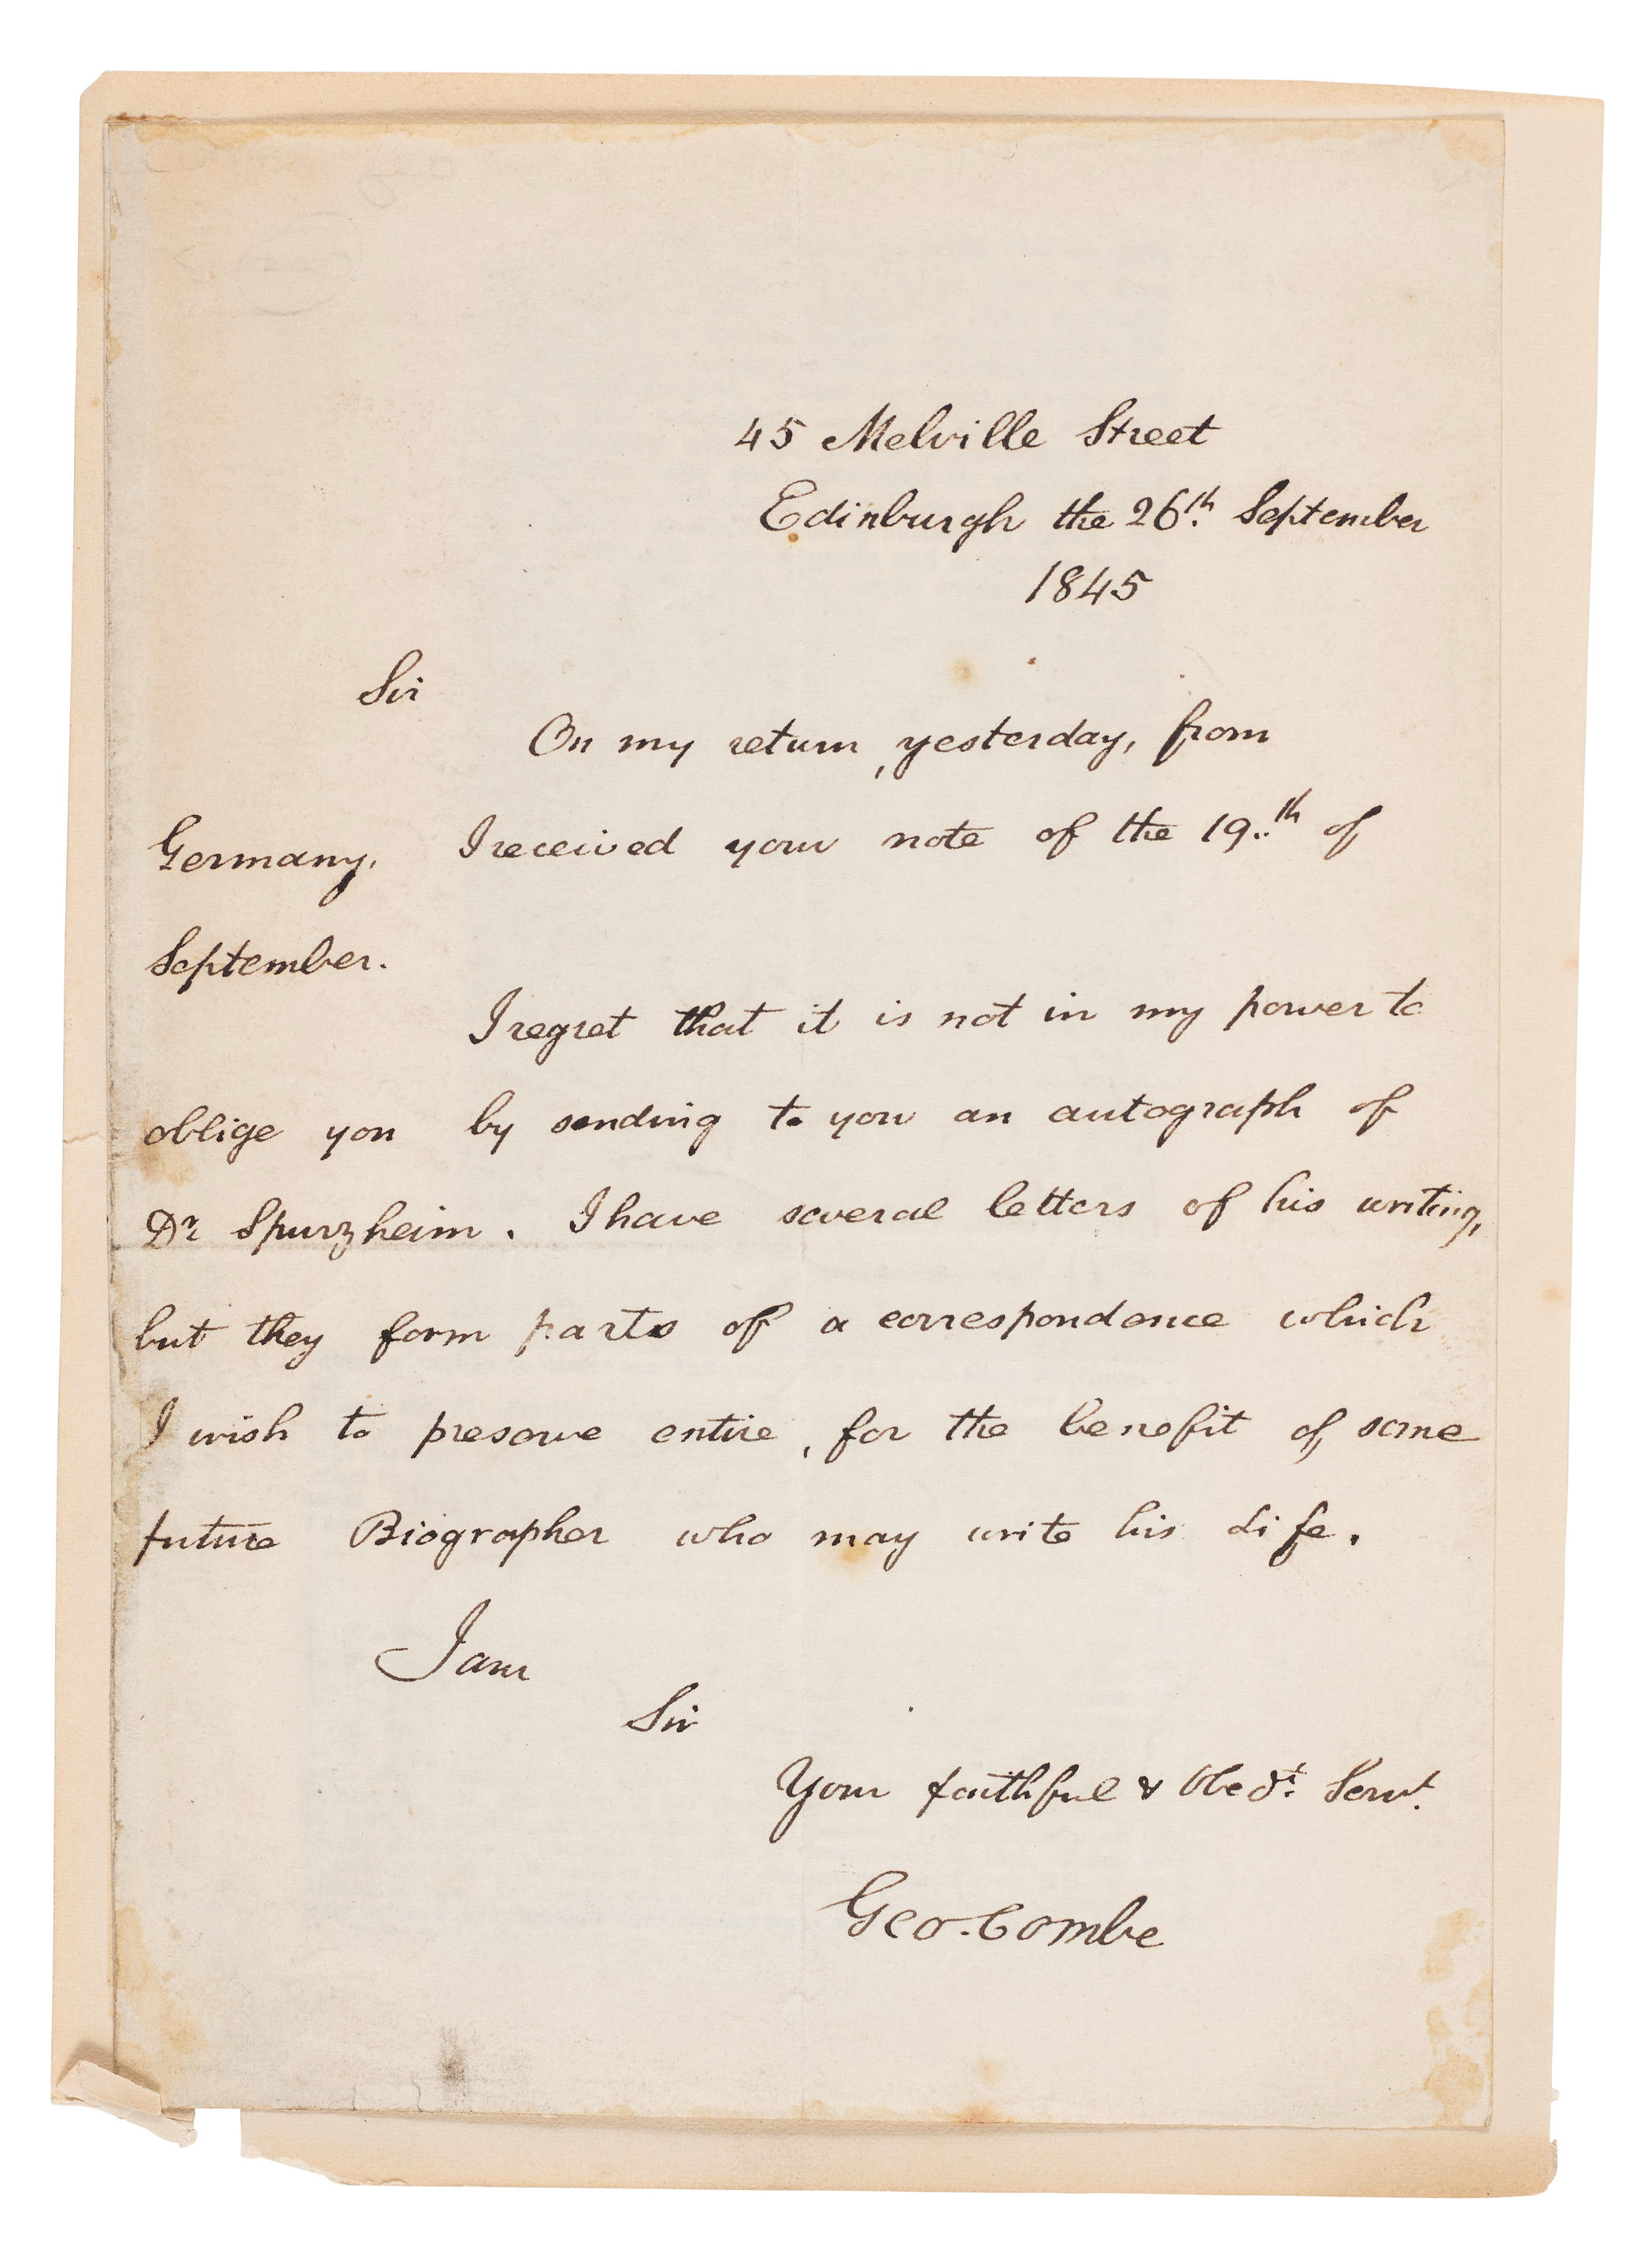 45 Melville Street
Edinburgh the 26th. September
1845
Sir
On my return, yesterday, from
Germany, I received your note of the 19th. of
September.
I regret that it is not in my power to
oblige you by sending to you an autograph of
Dr Spurzheim. I have several letters of his writing,
but they form parts of a correspondence which
I wish to preserve entire, for the benefit of some
future Biographer who may write his Life.
I am
Sir
Your faithful & Obedt. Servt.
Geo. Combe